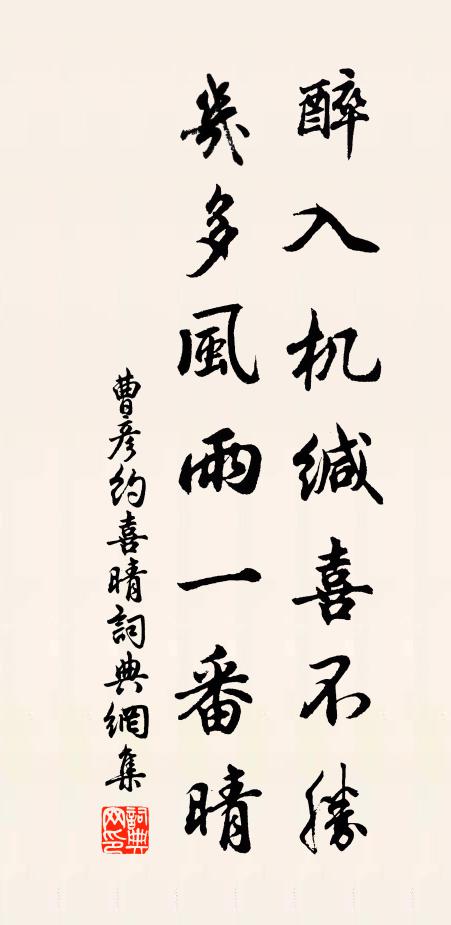 醉入机缄喜不勝
幾多風雨一番晴
曹彦約喜晴詞典網集
詞典網印